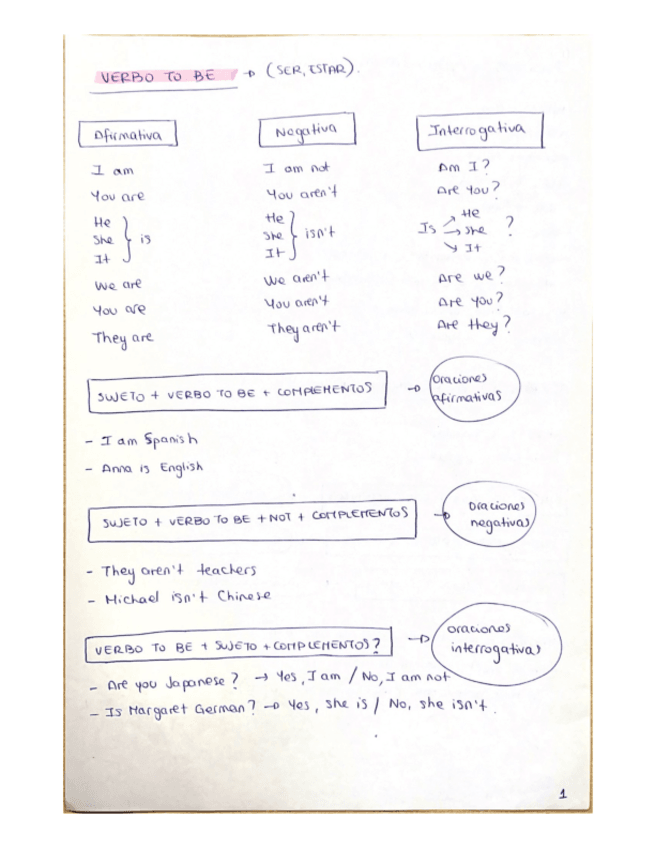 VERBO TO BE → (SER, ESTAR).
Afirmativa Negativa Interrogativa
I am I am not Am I?
You are You aren't Are you?
He He He
She } is She } isn't Is → she ?
It It It
We are We aren't Are we?
You are You aren't Are you?
They are They aren't Are they?
SUJETO + VERBO TO BE + COMPLEMENTOS → oraciones
afirmativas
- I am Spanish
- Anna is English
SUJETO + VERBO TO BE + NOT + COMPLEMENTOS → oraciones
negativas
- They aren't teachers
- Michael isn't Chinese
VERBO TO BE + SUJETO + COMPLEMENTOS? → oraciones
interrogativas
- Are you Japanese? → Yes, I am / No, I am not
- Is Margaret German? → Yes, she is / No, she isn't.
1